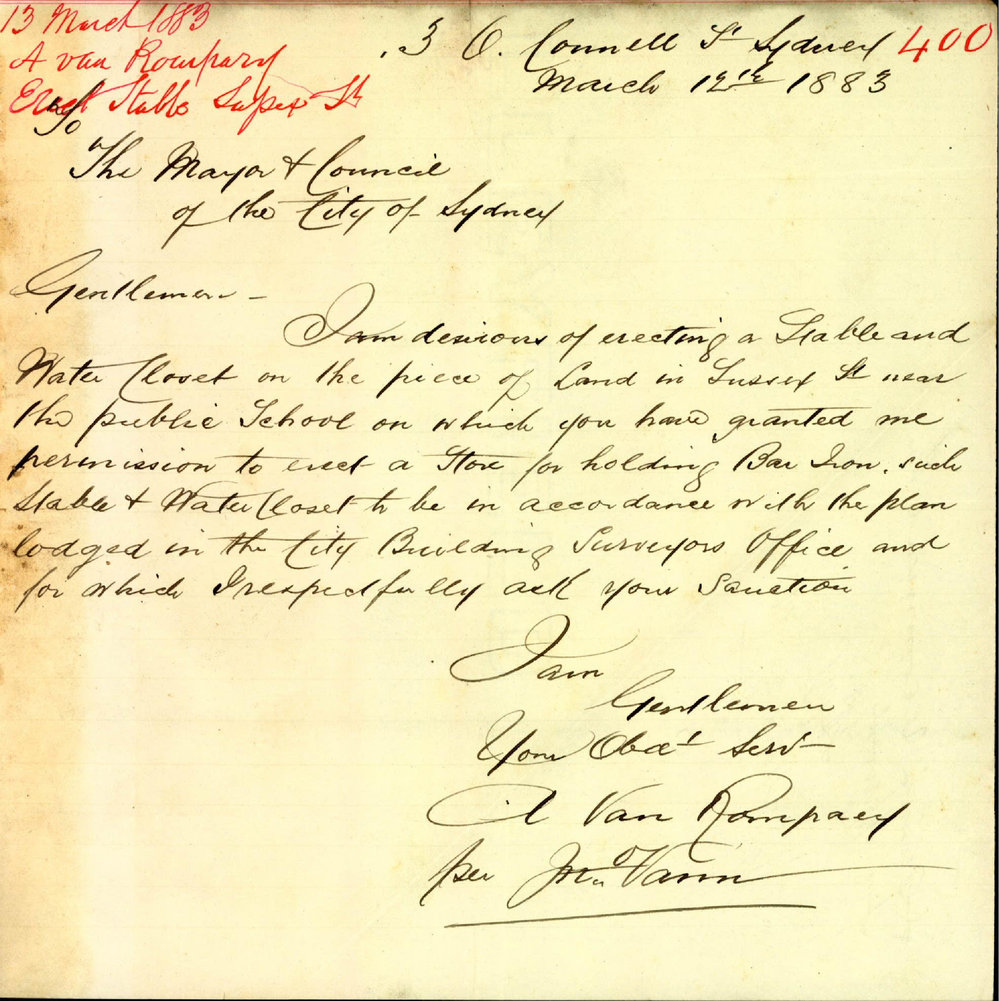 13 March 1883
A van Rompary
Erect Stable Sussex St
3 O. Connell St Sydney 400
March 12th 1883
To
The Mayor & Council
of the City of Sydney
Gentlemen -
I am desirous of erecting a Stable and
Water Closet on the piece of Land in Sussex St near
the public School on which you have granted me
permission to erect a Store for holding Bar Iron, such
Stable & Water Closet to be in accordance with the plan
lodged in the City Building Surveyors Office and
for which I respectfully ask your Sanction
I am
Gentlemen
Your Obdt Servt
A Van Rompaey
per Jno Vann